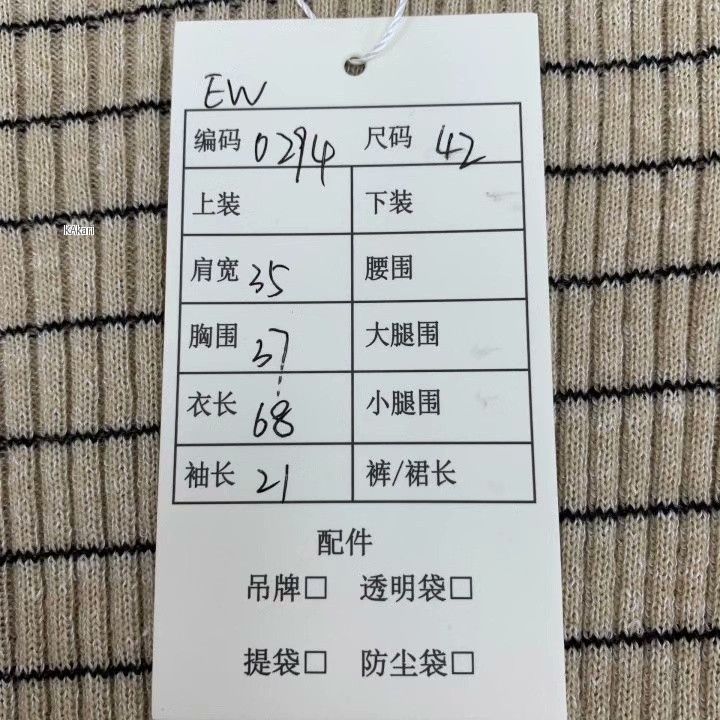 EW
编码 0294 尺码 42
上装 下装
肩宽 35 腰围
胸围 37 大腿围
衣长 68 小腿围
袖长 21 裤/裙长
配件
吊牌□ 透明袋□
提袋□ 防尘袋□
KAkari